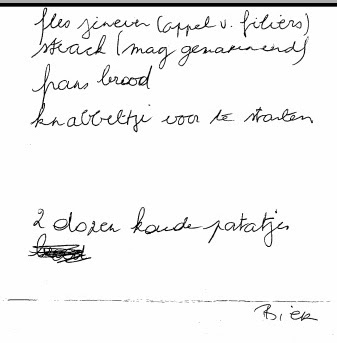 fles jenever (appel v. filiers)
steack (mag gemarineerd)
frans brood
knabbeltje voor te starten
2 dozen koude patatjes
Bier